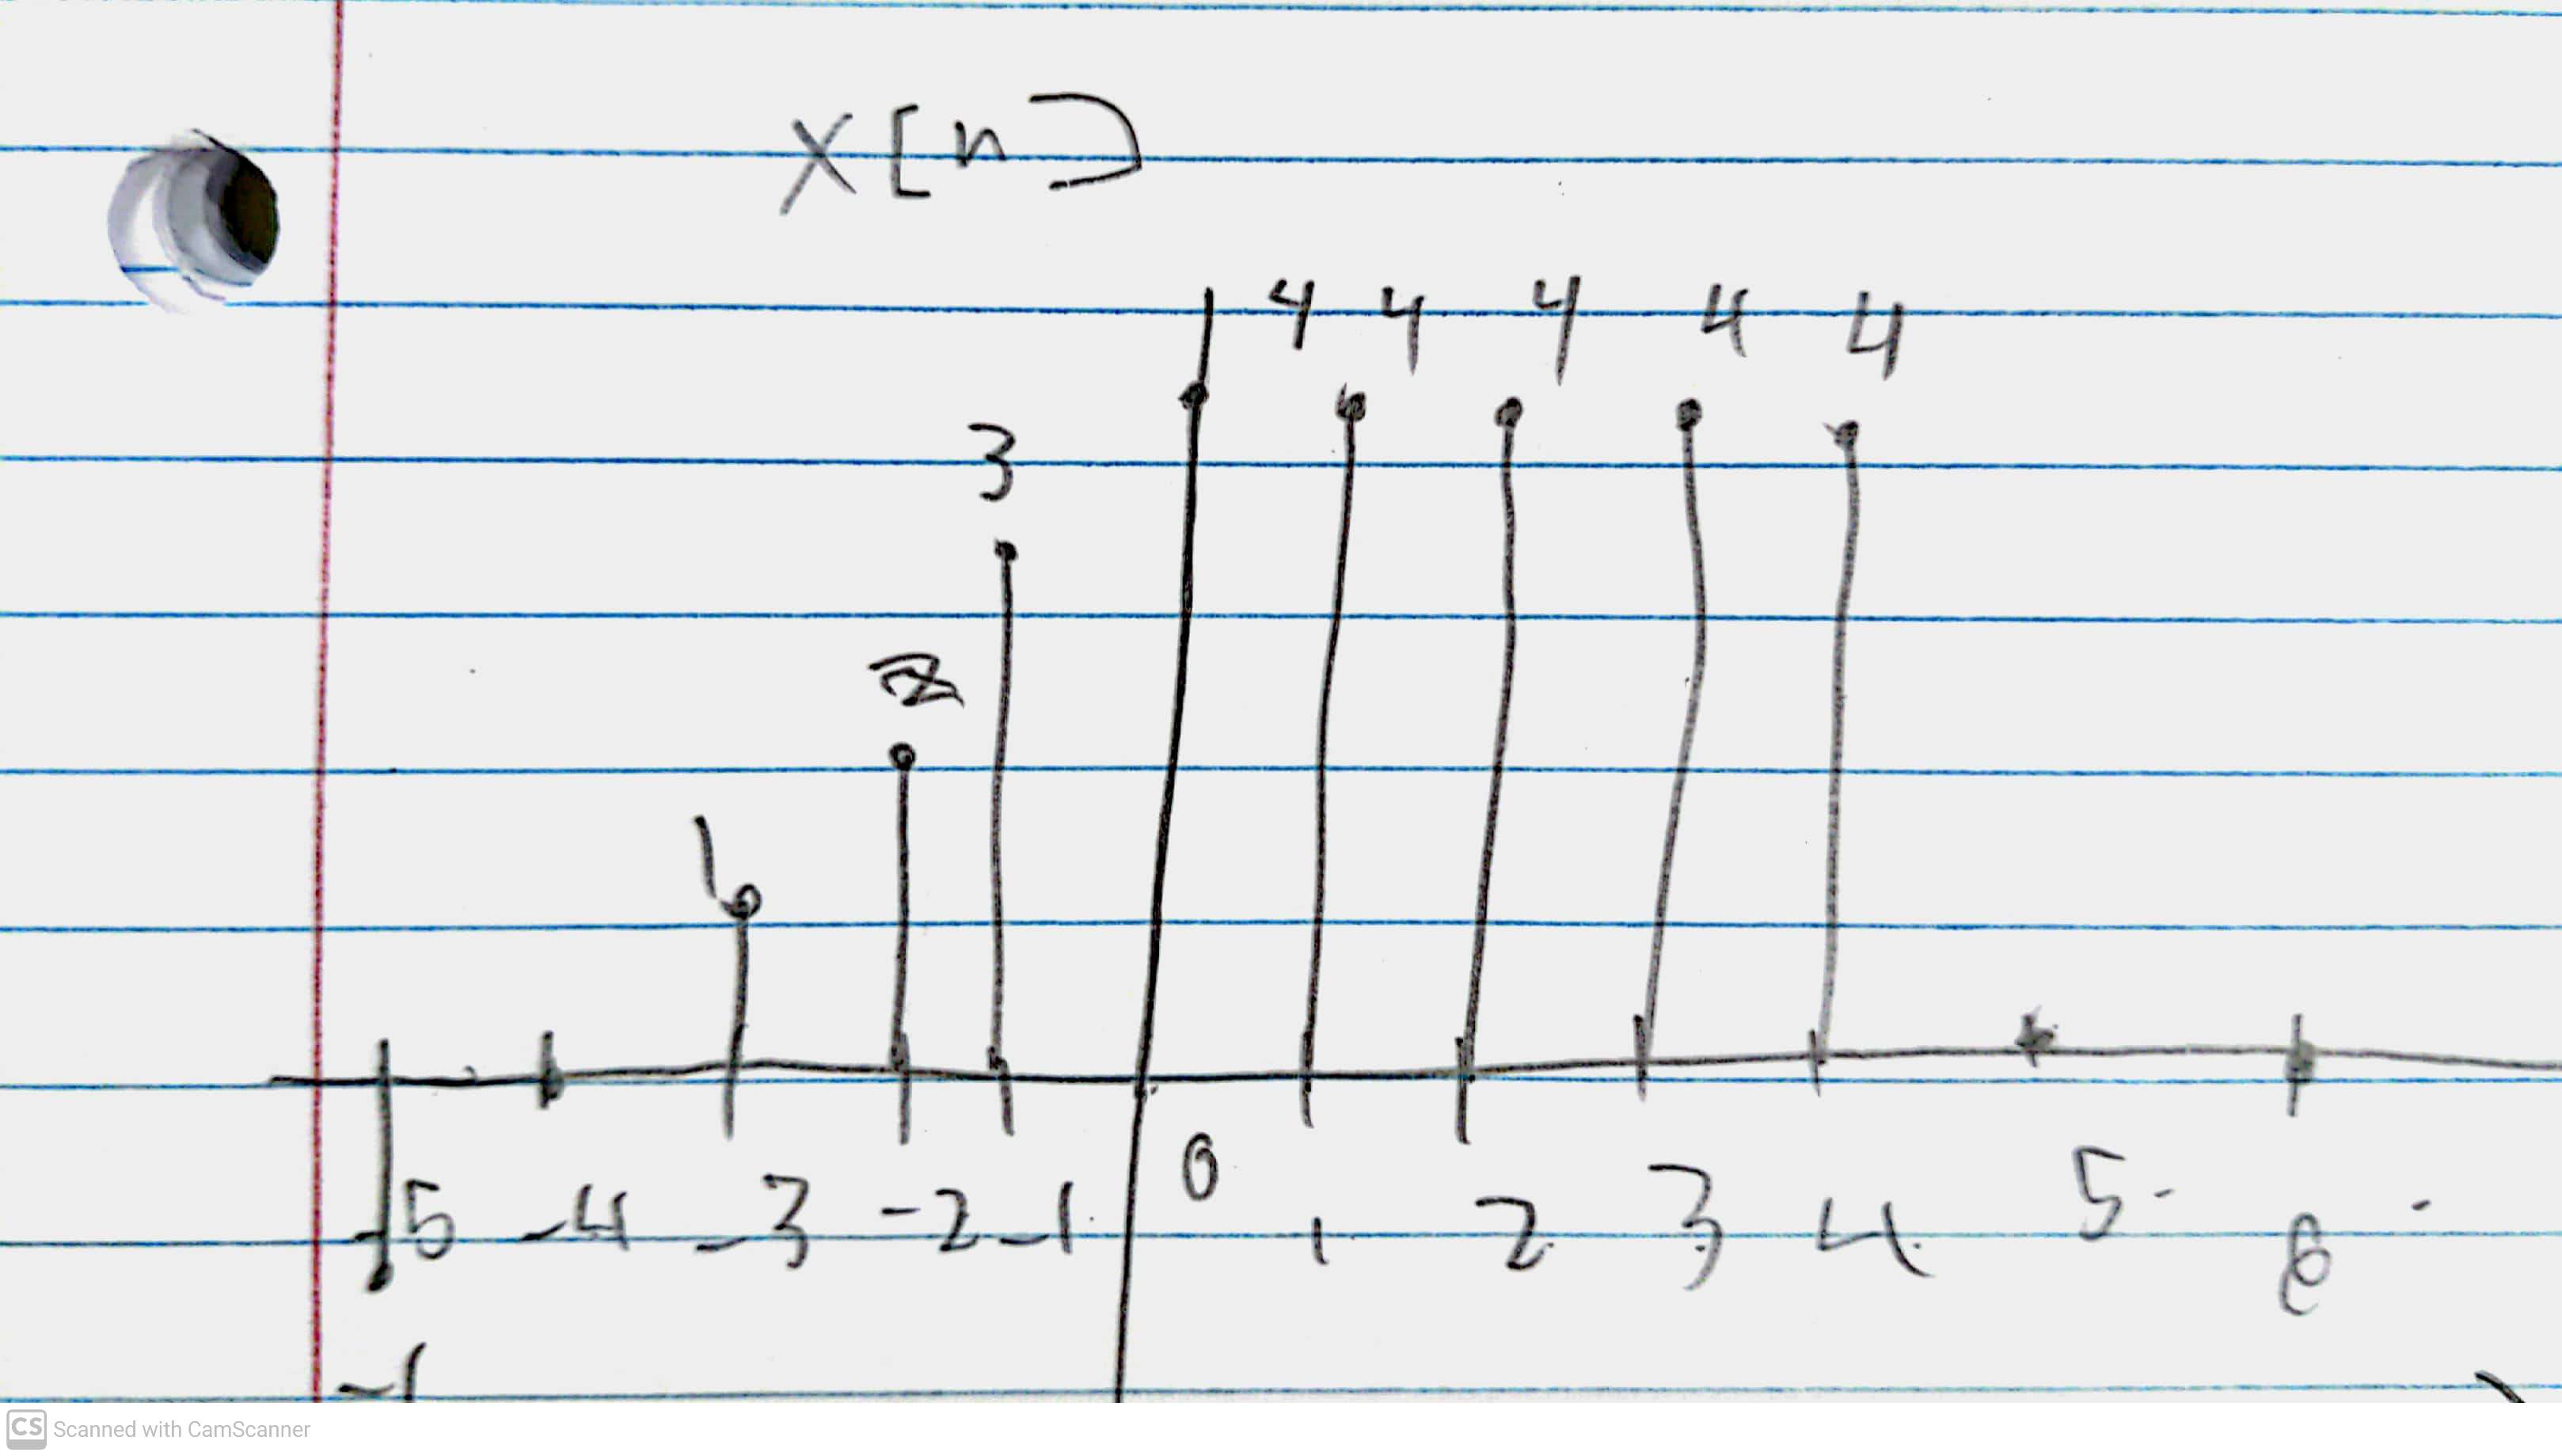 X[n]
4 4 4 4 4
3
2
1
-5 -4 -3 -2 -1 0 1 2 3 4 5 6
-1
CS Scanned with CamScanner